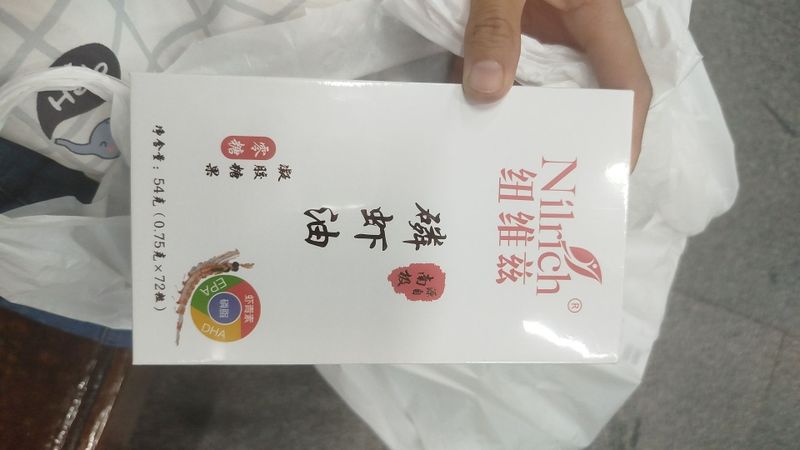 Nilrich®
纽维兹
源自
南极
磷虾油
零糖
凝胶糖果
虾青素
EPA
磷脂
DHA
净含量：54克（0.75克×72粒）